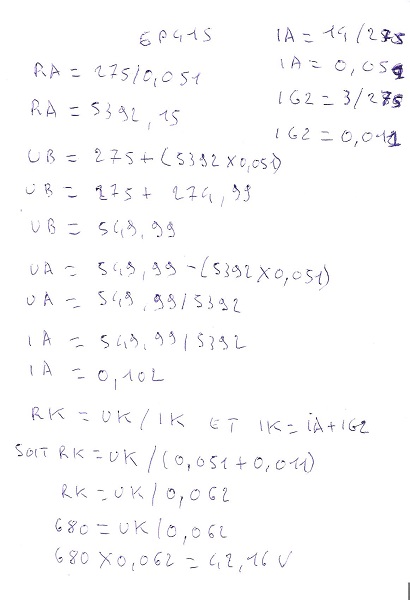 EP415
IA = 14/275
IA = 0,051
IG2 = 3/275
IG2 = 0,011
RA = 275/0,051
RA = 5392,15
UB = 275+(5392X0,051)
UB = 275+ 274,99
UB = 549,99
UA = 549,99-(5392X0,051)
UA = 549,99/5392
IA = 549,99/5392
IA = 0,102
RK = UK/IK ET IK=iA+IG2
SOIT RK=UK/(0,051+0,011)
RK=UK/0,062
680=UK/0,062
680X0,062=42,16V